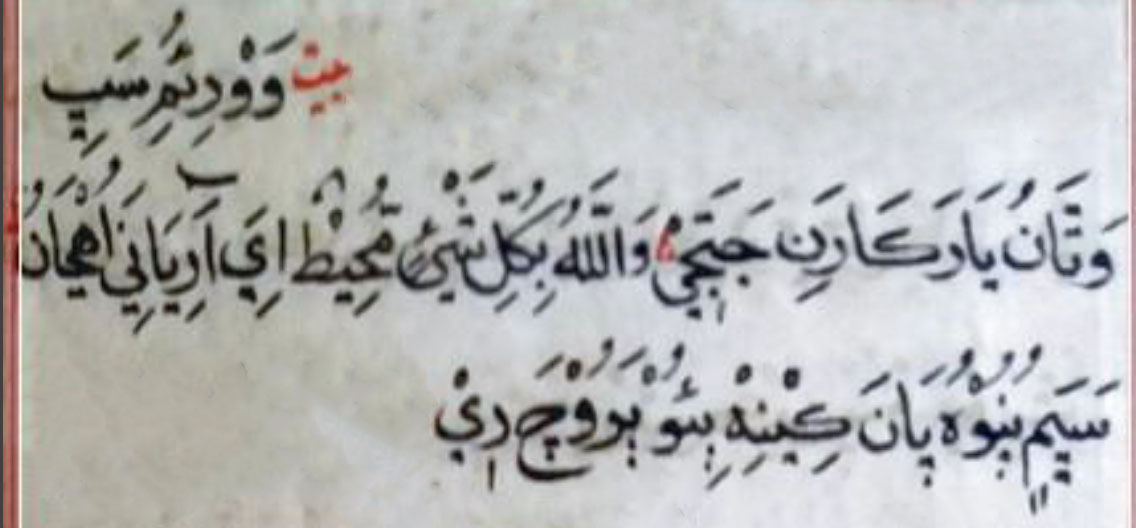 بيت وَوْدِئُمِ سَبِ
وَتَانُ يَارَ كَارَنِ جَتَجِيْ وَاللّٰهُ بِكُلِّ شَيْءٍ مُحِيْط اِيَ آرِيَانِيَ اُهْجَانُ
سَيَمِ پُنُوْهُ پَانَ كِيْنِهْ بِئُوْ بَرُوْچَ رِيْ